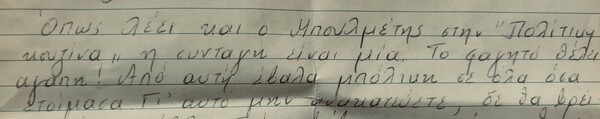 Όπως λέει και ο Μπουλμέτης στην "Πολίτικη
κουζίνα" η συνταγή είναι μία. Το φαγητό θέλει
αγάπη! Από αυτή έβαλα μπόλικη σε όλα όσα
ετοίμασα Γι' αυτό μην ανακατεύετε, δε θα βρεί